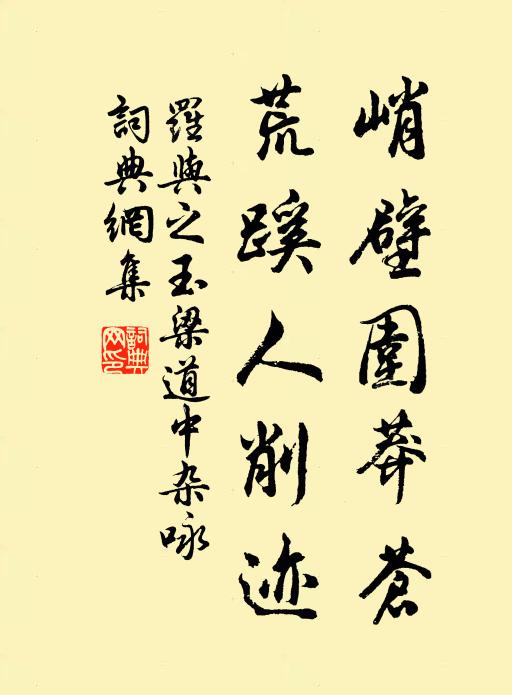 峭壁圍莽蒼
荒蹊人削迹
羅與之玉梁道中杂咏
詞典網集
詞典网印